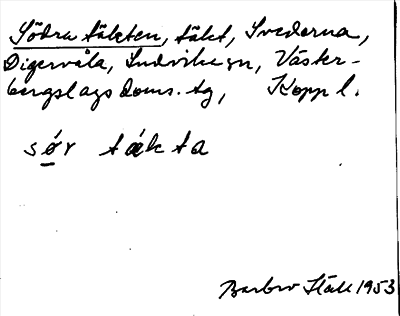 Södra täkten, täkt, Svederna,
Digervåla, Ludvika sn, Väster-
bergslags doms. tg, Kopp l.
sør täkta
Barbro Ståle 1953